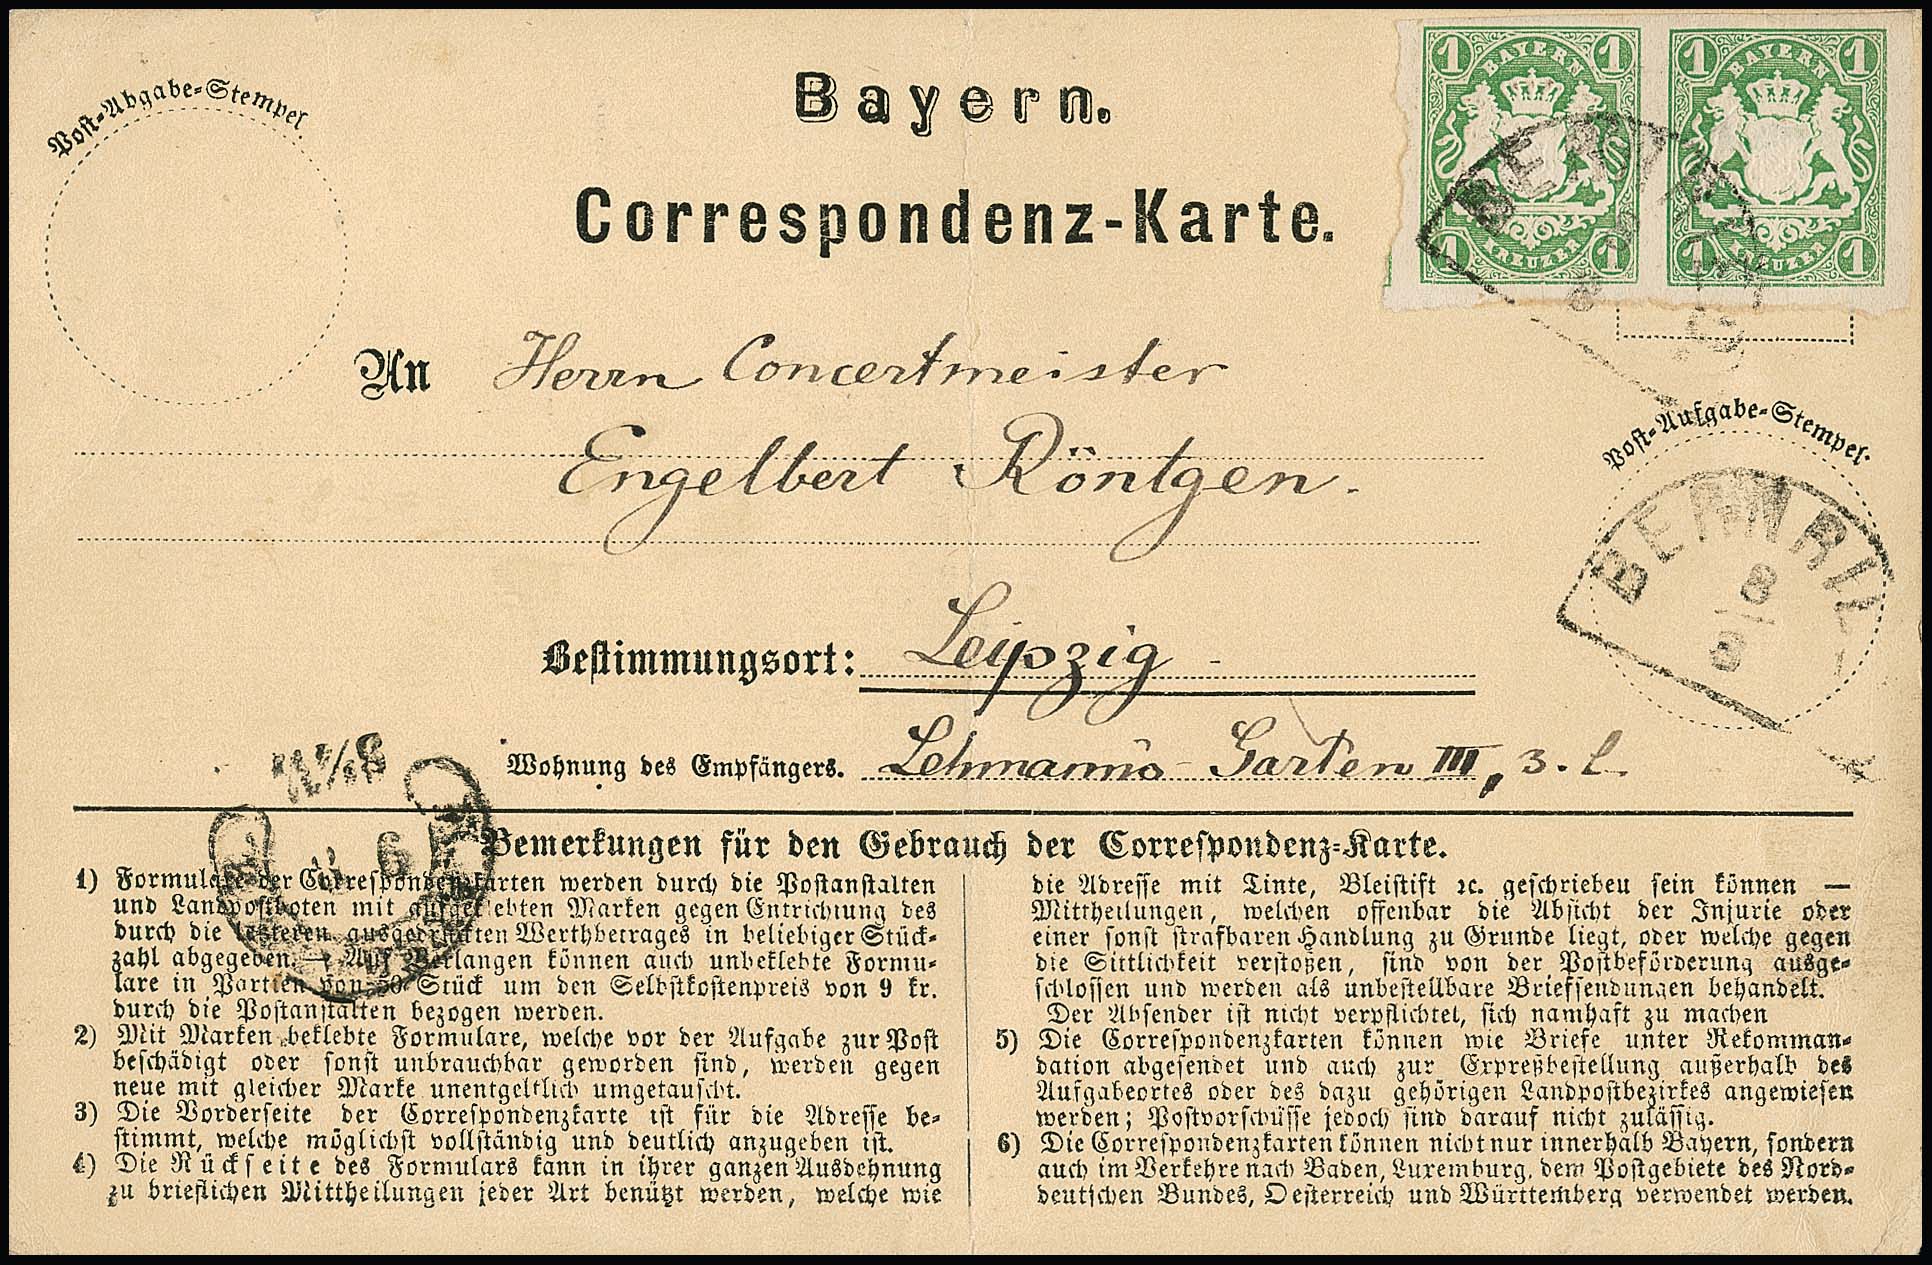 Post-Abgabe-Stempel
Bayern.
Correspondenz-Karte.
1 BAYERN 1
1 KREUZER 1
1 BAYERN 1
1 KREUZER 1
An Herrn Concertmeister
Engelbert Röntgen.
Post-Aufgabe-Stempel.
8
8
Bestimmungsort: Leipzig
Wohnung des Empfängers. Lehmann's Garten III, 3. l.
Bemerkungen für den Gebrauch der Correspondenz-Karte.
1) Formulare der Correspondenzkarten werden durch die Postanstalten
und Landpostboten mit aufgeklebten Marken gegen Entrichtung des
durch die letzteren ausgedrückten Werthbetrages in beliebiger Stück-
zahl abgegeben. — Auf Verlangen können auch unbeklebte Formu-
lare in Partien von 50 Stück um den Selbstkostenpreis von 9 kr.
durch die Postanstalten bezogen werden.
2) Mit Marken beklebte Formulare, welche vor der Aufgabe zur Post
beschädigt oder sonst unbrauchbar geworden sind, werden gegen
neue mit gleicher Marke unentgeltlich umgetauscht.
3) Die Vorderseite der Correspondenzkarte ist für die Adresse be-
stimmt, welche möglichst vollständig und deutlich anzugeben ist.
4) Die Rückseite des Formulars kann in ihrer ganzen Ausdehnung
zu brieflichen Mittheilungen jeder Art benützt werden, welche wie
die Adresse mit Tinte, Bleistift ꝛc. geschrieben sein können —
Mittheilungen, welchen offenbar die Absicht der Injurie oder
einer sonst strafbaren Handlung zu Grunde liegt, oder welche gegen
die Sittlichkeit verstoßen, sind von der Postbeförderung ausge-
schlossen und werden als unbestellbare Briefsendungen behandelt.
Der Absender ist nicht verpflichtet, sich namhaft zu machen
5) Die Correspondenzkarten können wie Briefe unter Rekomman-
dation abgesendet und auch zur Expreßbestellung außerhalb des
Aufgabeortes oder des dazu gehörigen Landpostbezirkes angewiesen
werden; Postvorschüsse jedoch sind darauf nicht zulässig.
6) Die Correspondenzkarten können nicht nur innerhalb Bayern, sondern
auch im Verkehre nach Baden, Luxemburg, dem Postgebiete des Nord-
deutschen Bundes, Oesterreich und Württemberg verwendet werden.